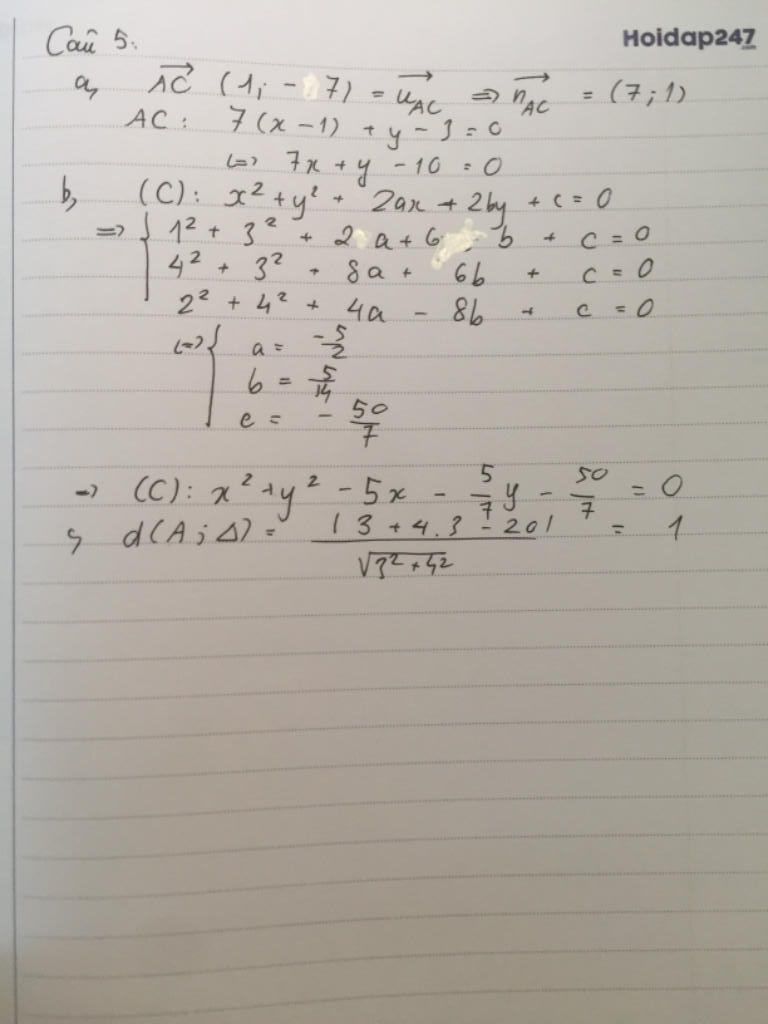 Hoidap247
Câu 5:
a, AC→ (1; -7) = u→AC => n→AC = (7; 1)
AC: 7(x-1) + y - 3 = 0
<=> 7x + y - 10 = 0
b, (C): x² + y² + 2ax + 2by + c = 0
=> { 1² + 3² + 2a + 6b + c = 0
4² + 3² + 8a + 6b + c = 0
2² + 4² + 4a - 8b + c = 0
<=> { a = -5/2
b = 5/14
c = -50/7
=> (C): x² + y² - 5x - 5/7 y - 50/7 = 0
c, d(A; Δ) = |3 + 4.3 - 20| / √3² + 4² = 1